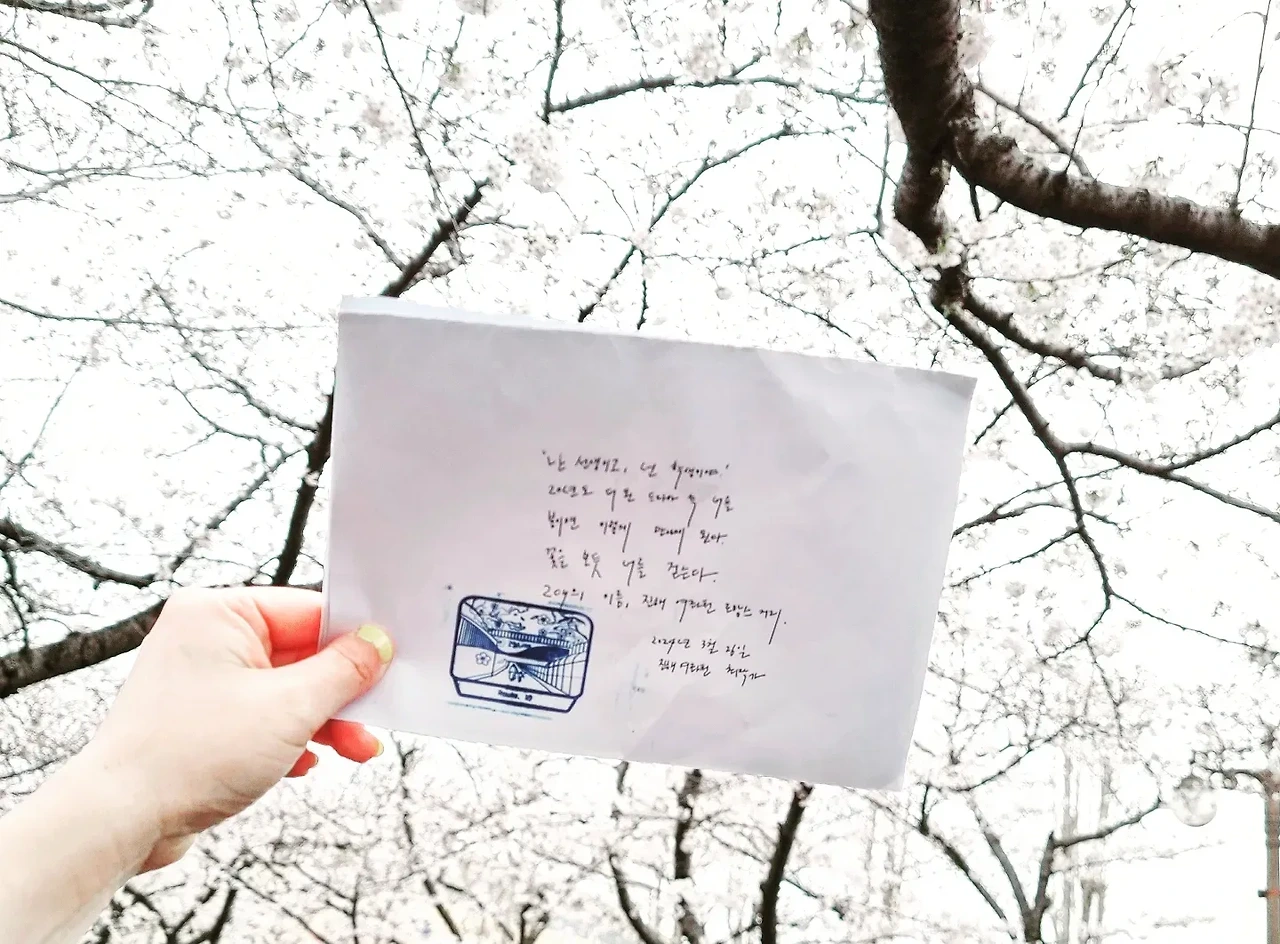 "난 선생이고, 넌 학생이야."
20년도 더 된 드라마 속 너를
봄이면 이렇게 만나게 된다.
꽃을 보듯 너를 걷는다.
로망의 이름, 진해 여좌천 로망스 거리.
2024년 3월 26일
진해 여좌천